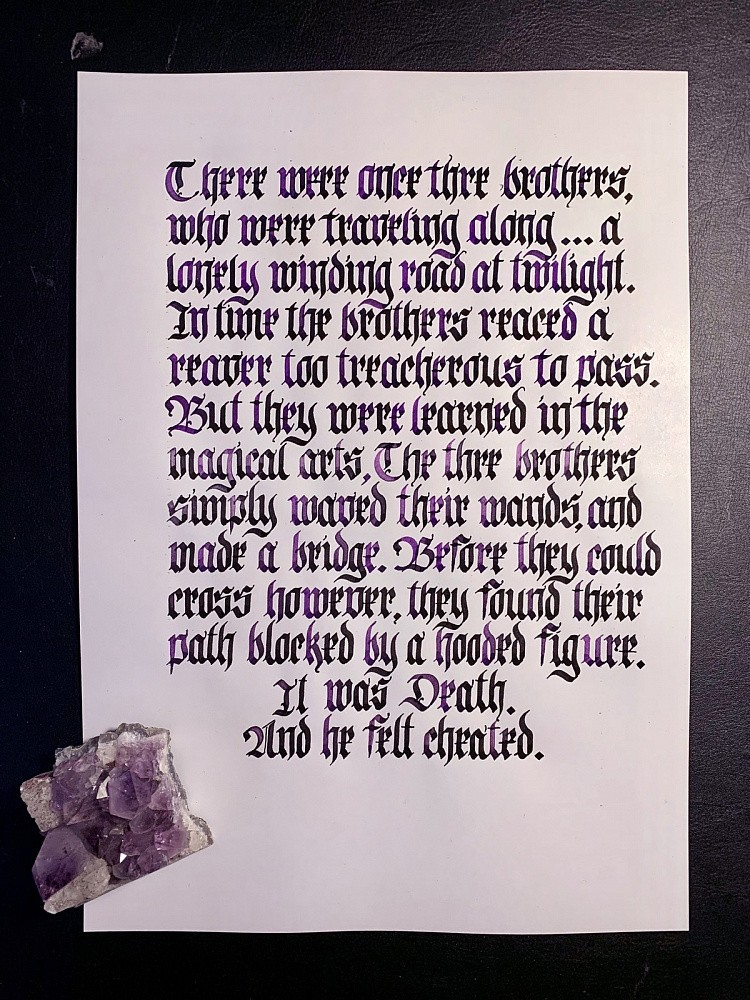 There were once thre brothers,
who were traveling along... a
lonely winding road at twilight.
In time the brothers reaced a
reaver too treacherous to pass.
But they were learned in the
magical arts, The thre brothers
simply waved their wands, and
made a bridge. Before they could
cross however, they found their
path blocked by a hooded figure.
It was Death.
And he felt cheated.